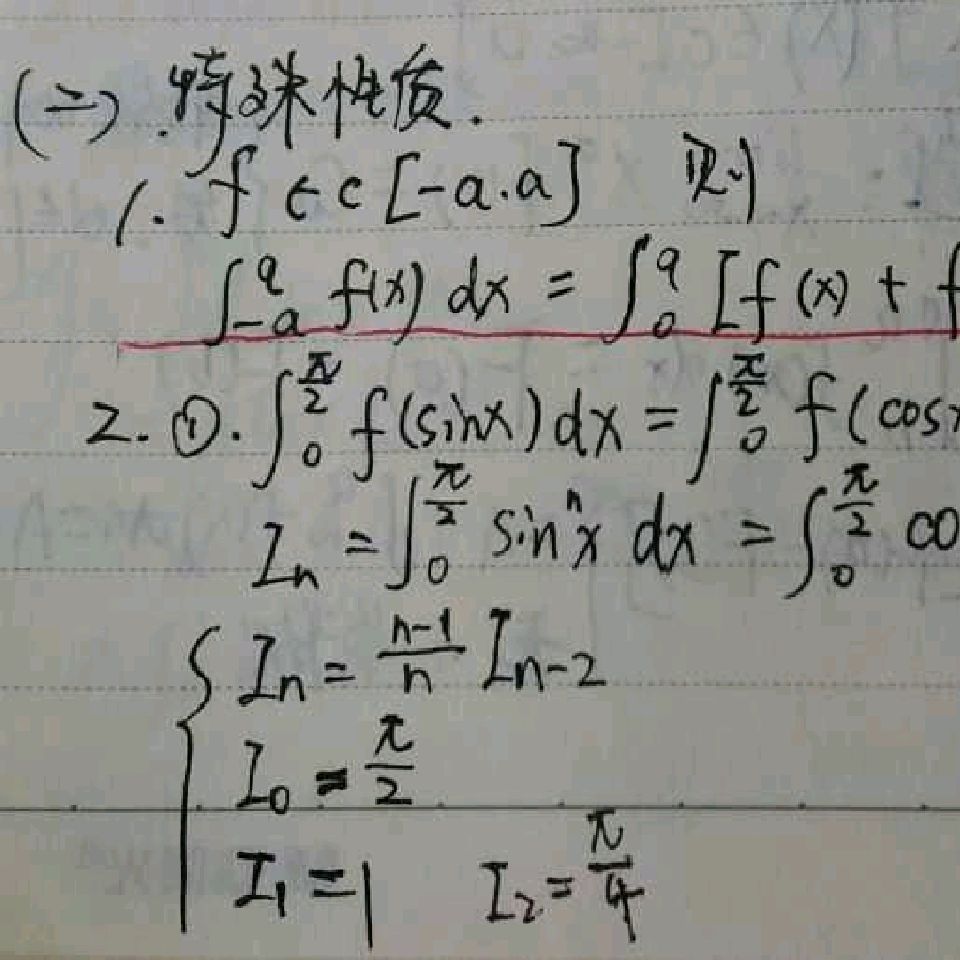 (二).特殊性质.
1. f∈c[-a.a] 则
∫_{-a}^{a} f(x) dx = ∫_0^a [f(x) + f
2. ①. ∫_0^{π/2} f(sinx)dx = ∫_0^{π/2} f(cosx
I_n = ∫_0^{π/2} sin^n x dx = ∫_0^{π/2} co
{ I_n = \frac{n-1}{n} I_{n-2}
I_0 = π/2
I_1 = 1 I_2 = π/4